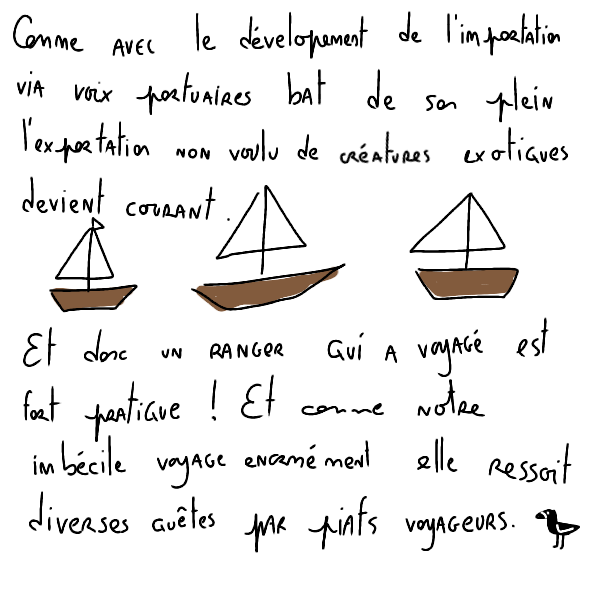 Comme avec le dévelopement de l'importation
via voix portuaires bat de son plein
l'exportation non voulu de créatures exotiques
devient courant.
Et donc un ranger qui a voyagé est
fort pratique ! Et comme notre
imbécile voyage enormément elle ressoit
diverses quêtes par piafs voyageurs.